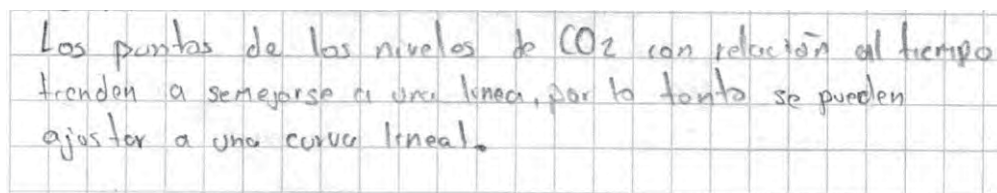 Los puntos de los niveles de CO2 con relación al tiempo
tienden a semejarse a una linea, por lo tanto se pueden
ajustar a una curva lineal.